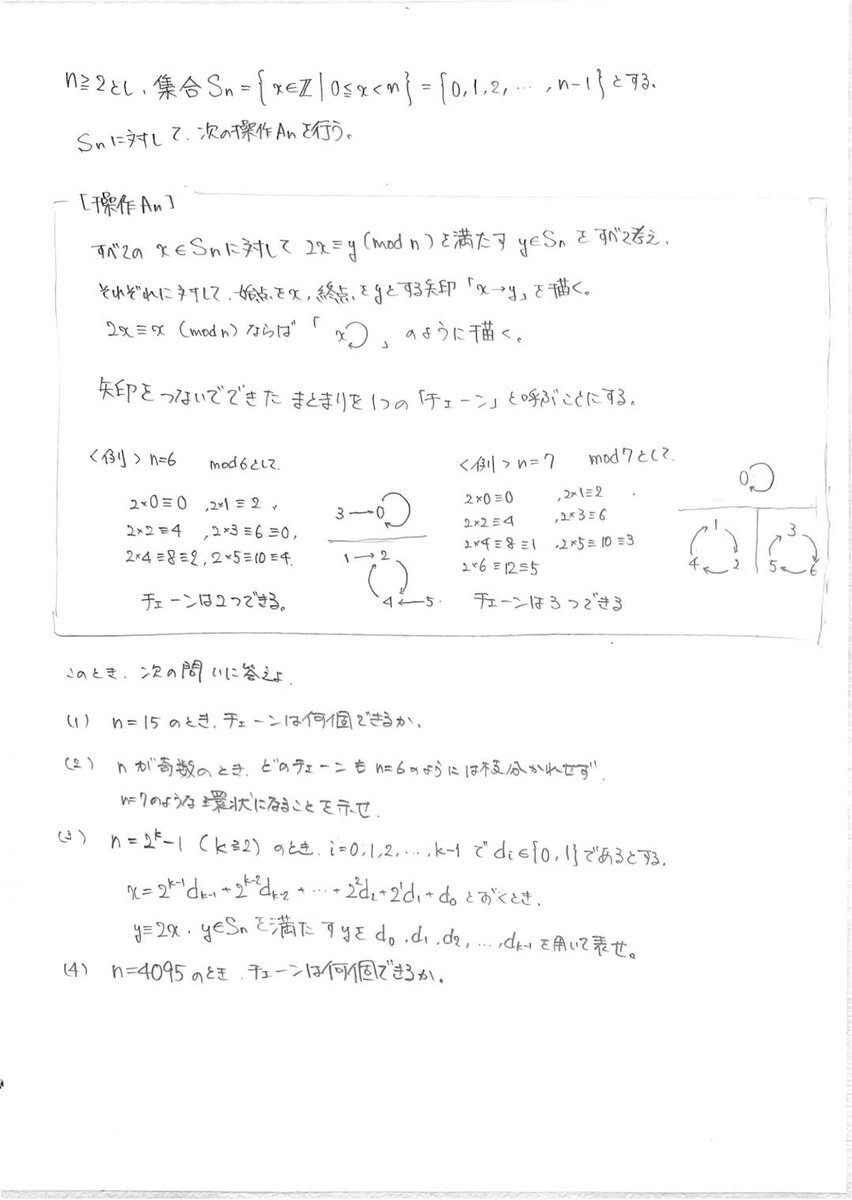 n≧2とし、集合Sn={x∈ℤ|0≦x<n}={0,1,2,…,n-1}とする。
Snに対して、次の操作Anを行う。
[操作An]
すべての x∈Snに対して 2x≡y(mod n)を満たす y∈Sn をすべて考え、
それぞれに対して、始点をx、終点をyとする矢印「x→y」を描く。
2x≡x (mod n)ならば「x」のように描く。
矢印をつないでできたまとまりを1つの「チェーン」と呼ぶことにする。
<例> n=6 mod6として
2×0≡0, 2×1≡2,
2×2≡4, 2×3≡6≡0,
2×4≡8≡2, 2×5≡10≡4.
3→0
1→2
4←5
チェーンは2つできる。
<例> n=7 mod7として
2×0≡0, 2×1≡2,
2×2≡4, 2×3≡6
2×4≡8≡1, 2×5≡10≡3
2×6≡12≡5
0
1 3
4 2 5 6
チェーンは3つできる
このとき、次の問いに答えよ。
(1) n=15のとき、チェーンは何個できるか。
(2) nが奇数のとき、どのチェーンもn=6のようには枝分かれせず、
n=7のような環状になることを示せ.
(3) n=2^k-1 (k≧2)のとき、i=0,1,2,…,k-1でdi∈{0,1}であるとする。
x=2^{k-1}d_{k-1}+2^{k-2}d_{k-2}+…+2^2d_2+2^1d_1+d_0とおくとき、
y≡2x, y∈Snを満たすyをd_0,d_1,d_2,…,d_{k-1}を用いて表せ。
(4) n=4095のとき、チェーンは何個できるか。